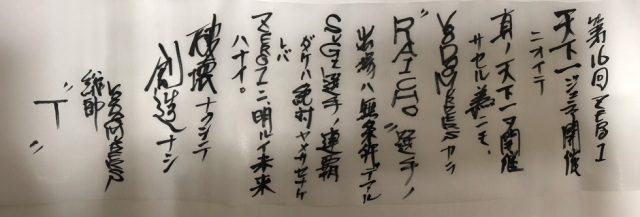 第16回 ZERO1
天下一ジュニア開催
ニオイテ
真ノ天下一ヲ開催
サセル為ニモ、
VOODOO MURDERSカラ
"RAICHO"選手ノ
出場ハ無条件デアル
SUGI選手ノ連覇
ダケハ絶対ヤメサセナケ
レバ
ZERO1ニ、明ルイ未来
ハナイ。
破壊ナクシテ
創造ナシ
VOODOO MURDERS
総帥
"T"